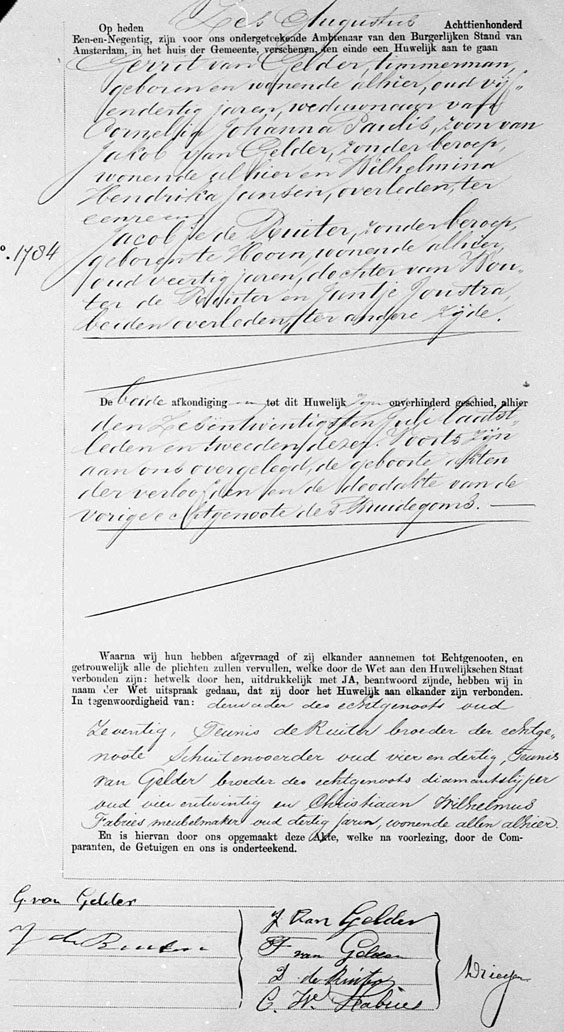 Op heden Zes Augustus Achttienhonderd
Een-en-Negentig, zijn voor ons ondergeteekende Ambtenaar van den Burgerlijken Stand van
Amsterdam, in het huis der Gemeente, verschenen, ten einde een Huwelijk aan te gaan
Gerrit van Gelder, timmerman,
geboren en wonende alhier, oud vijf-
endertig jaren, weduwnaar van
Cornelia Johanna Paulis, zoon van
Jakob van Gelder, zonder beroep,
wonende alhier en Wilhelmina
Hendrika Jansen, overleden, ter
eenre en
Jacobje de Ruiter, zonder beroep,
No. 1784
geboren te Hoorn, wonende alhier,
oud veertig jaren, dochter van Wou-
ter de Ruiter en Jantje Joustra,
beiden overleden, ter andere zijde.
De beide afkondigingen tot dit Huwelijk zijn onverhinderd geschied, alhier
den Zesentwintigsten Juli laatst-
leden en tweeden dezer. Voorts zijn
aan ons overgelegd, de geboorte akten
der verloofden en de doodakte van de
vorige echtgenoote des Bruidegoms.
Waarna wij hun hebben afgevraagd of zij elkander aannemen tot Echtgenooten, en
getrouwelijk alle de plichten zullen vervullen, welke door de Wet aan den Huwelijkschen Staat
verbonden zijn: hetwelk door hen, uitdrukkelijk met JA, beantwoord zijnde, hebben wij in
naam der Wet uitspraak gedaan, dat zij door het Huwelijk aan elkander zijn verbonden.
In tegenwoordigheid van: den vader des echtgenoots oud
Zeventig, Teunis de Ruiter broeder der echtge-
noote Schuitenvoerder oud vier en dertig, Teunis
van Gelder broeder des echtgenoots diamantslijper
oud vier entwintig en Christiaan Wilhelmus
Fabries meubelmaker oud dertig jaren, wonende allen alhier.
En is hiervan door ons opgemaakt deze Akte, welke na voorlezing, door de Com-
paranten, de Getuigen en ons is onderteekend.
G van Gelder
J de Ruiter
J van Gelder
T van Gelder
de Ruiter
C. W. Fabries